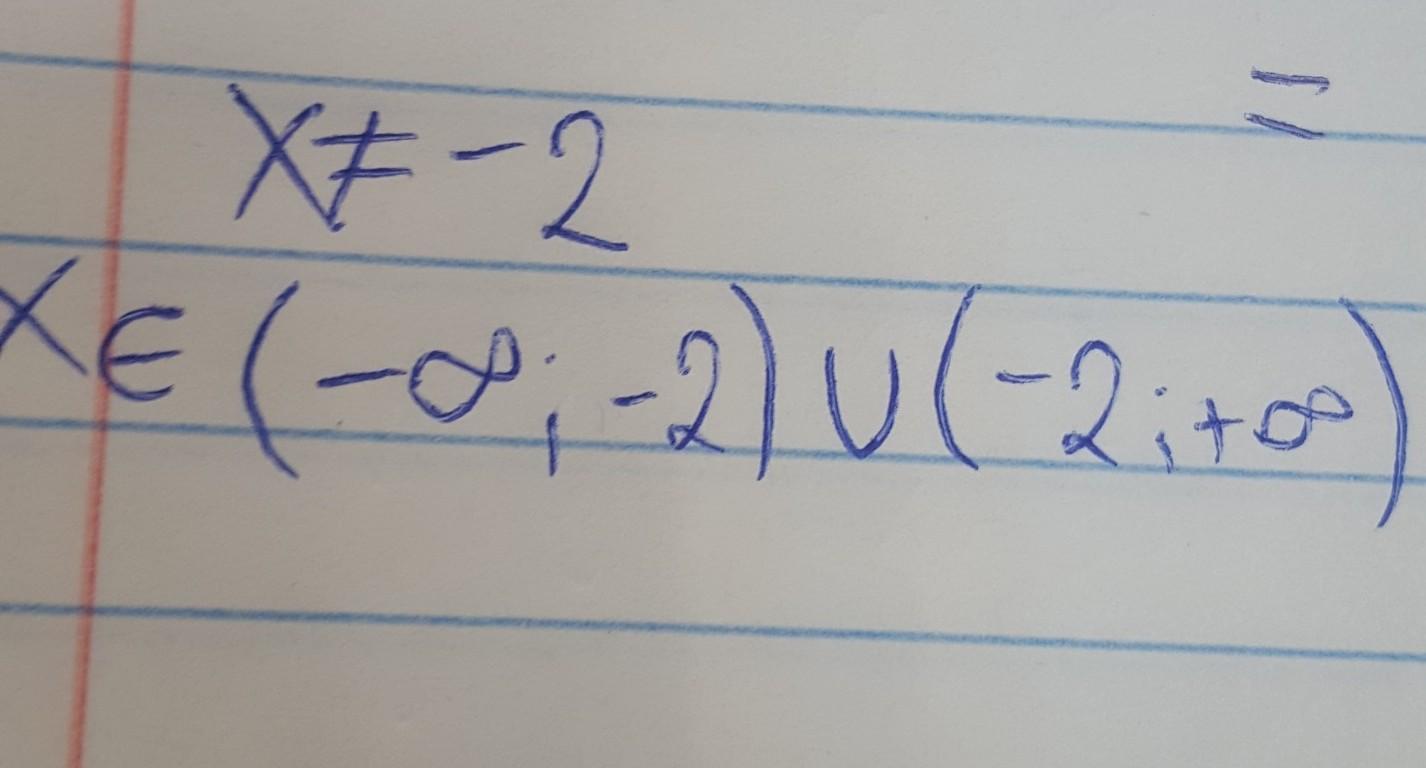 =
x≠-2
x∈(-∞;-2)∪(-2;+∞)